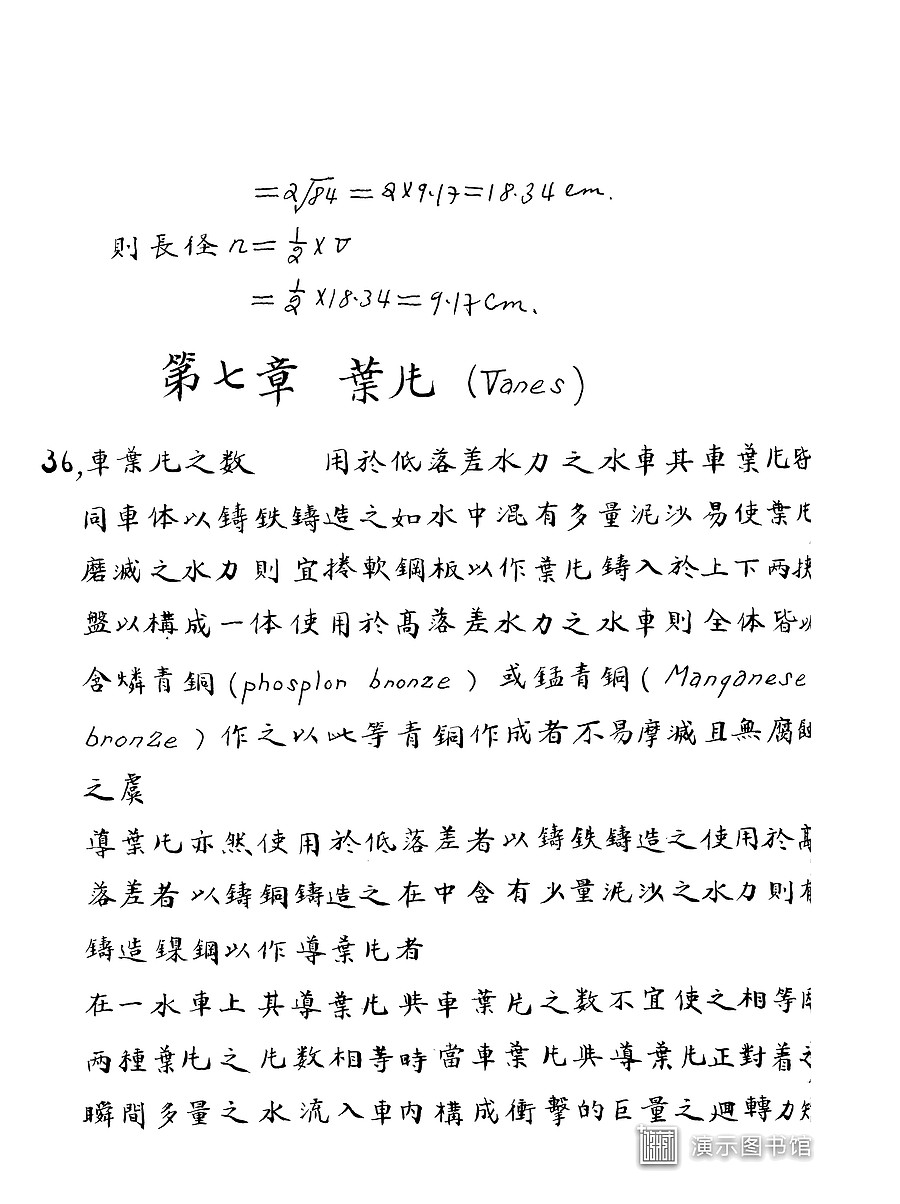 =2√84 = 2×9.17=18.34 cm.
則長径 n= 1/2 × v
= 1/2 ×18.34 = 9.17 cm.
第七章 葉片 (Vanes)
36, 車葉片之数 用於低落差水力之水車其車葉片皆
同車体以鋳鉄鋳造之如水中混有多量泥沙易使葉片
磨滅之水力則宜捲軟鋼板以作葉片鋳入於上下両
盤以構成一体使用於高落差水力之水車則全体皆以
含燐青銅 (phosplor bronze) 或錳青銅 (Manganese
bronze) 作之以此等青銅作成者不易摩滅且無腐蝕
之虞
導葉片亦然使用於低落差者以鋳鉄鋳造之使用於高
落差者以鋳銅鋳造之在中含有少量泥沙之水力則有
鋳造鎳鋼以作導葉片者
在一水車上其導葉片與車葉片之数不宜使之相等
両種葉片之片数相等時當車葉片與導葉片正對着之
瞬間多量之水流入車内構成衝撃的巨量之廻轉力
演示图书馆